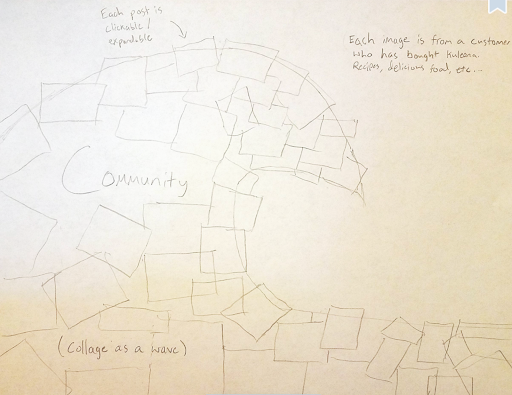 Each post is
clickable /
expandable
Each image is from a customer
who has bought Kuleana.
Recipes, delicious food, etc...
Community
(Collage as a wave)